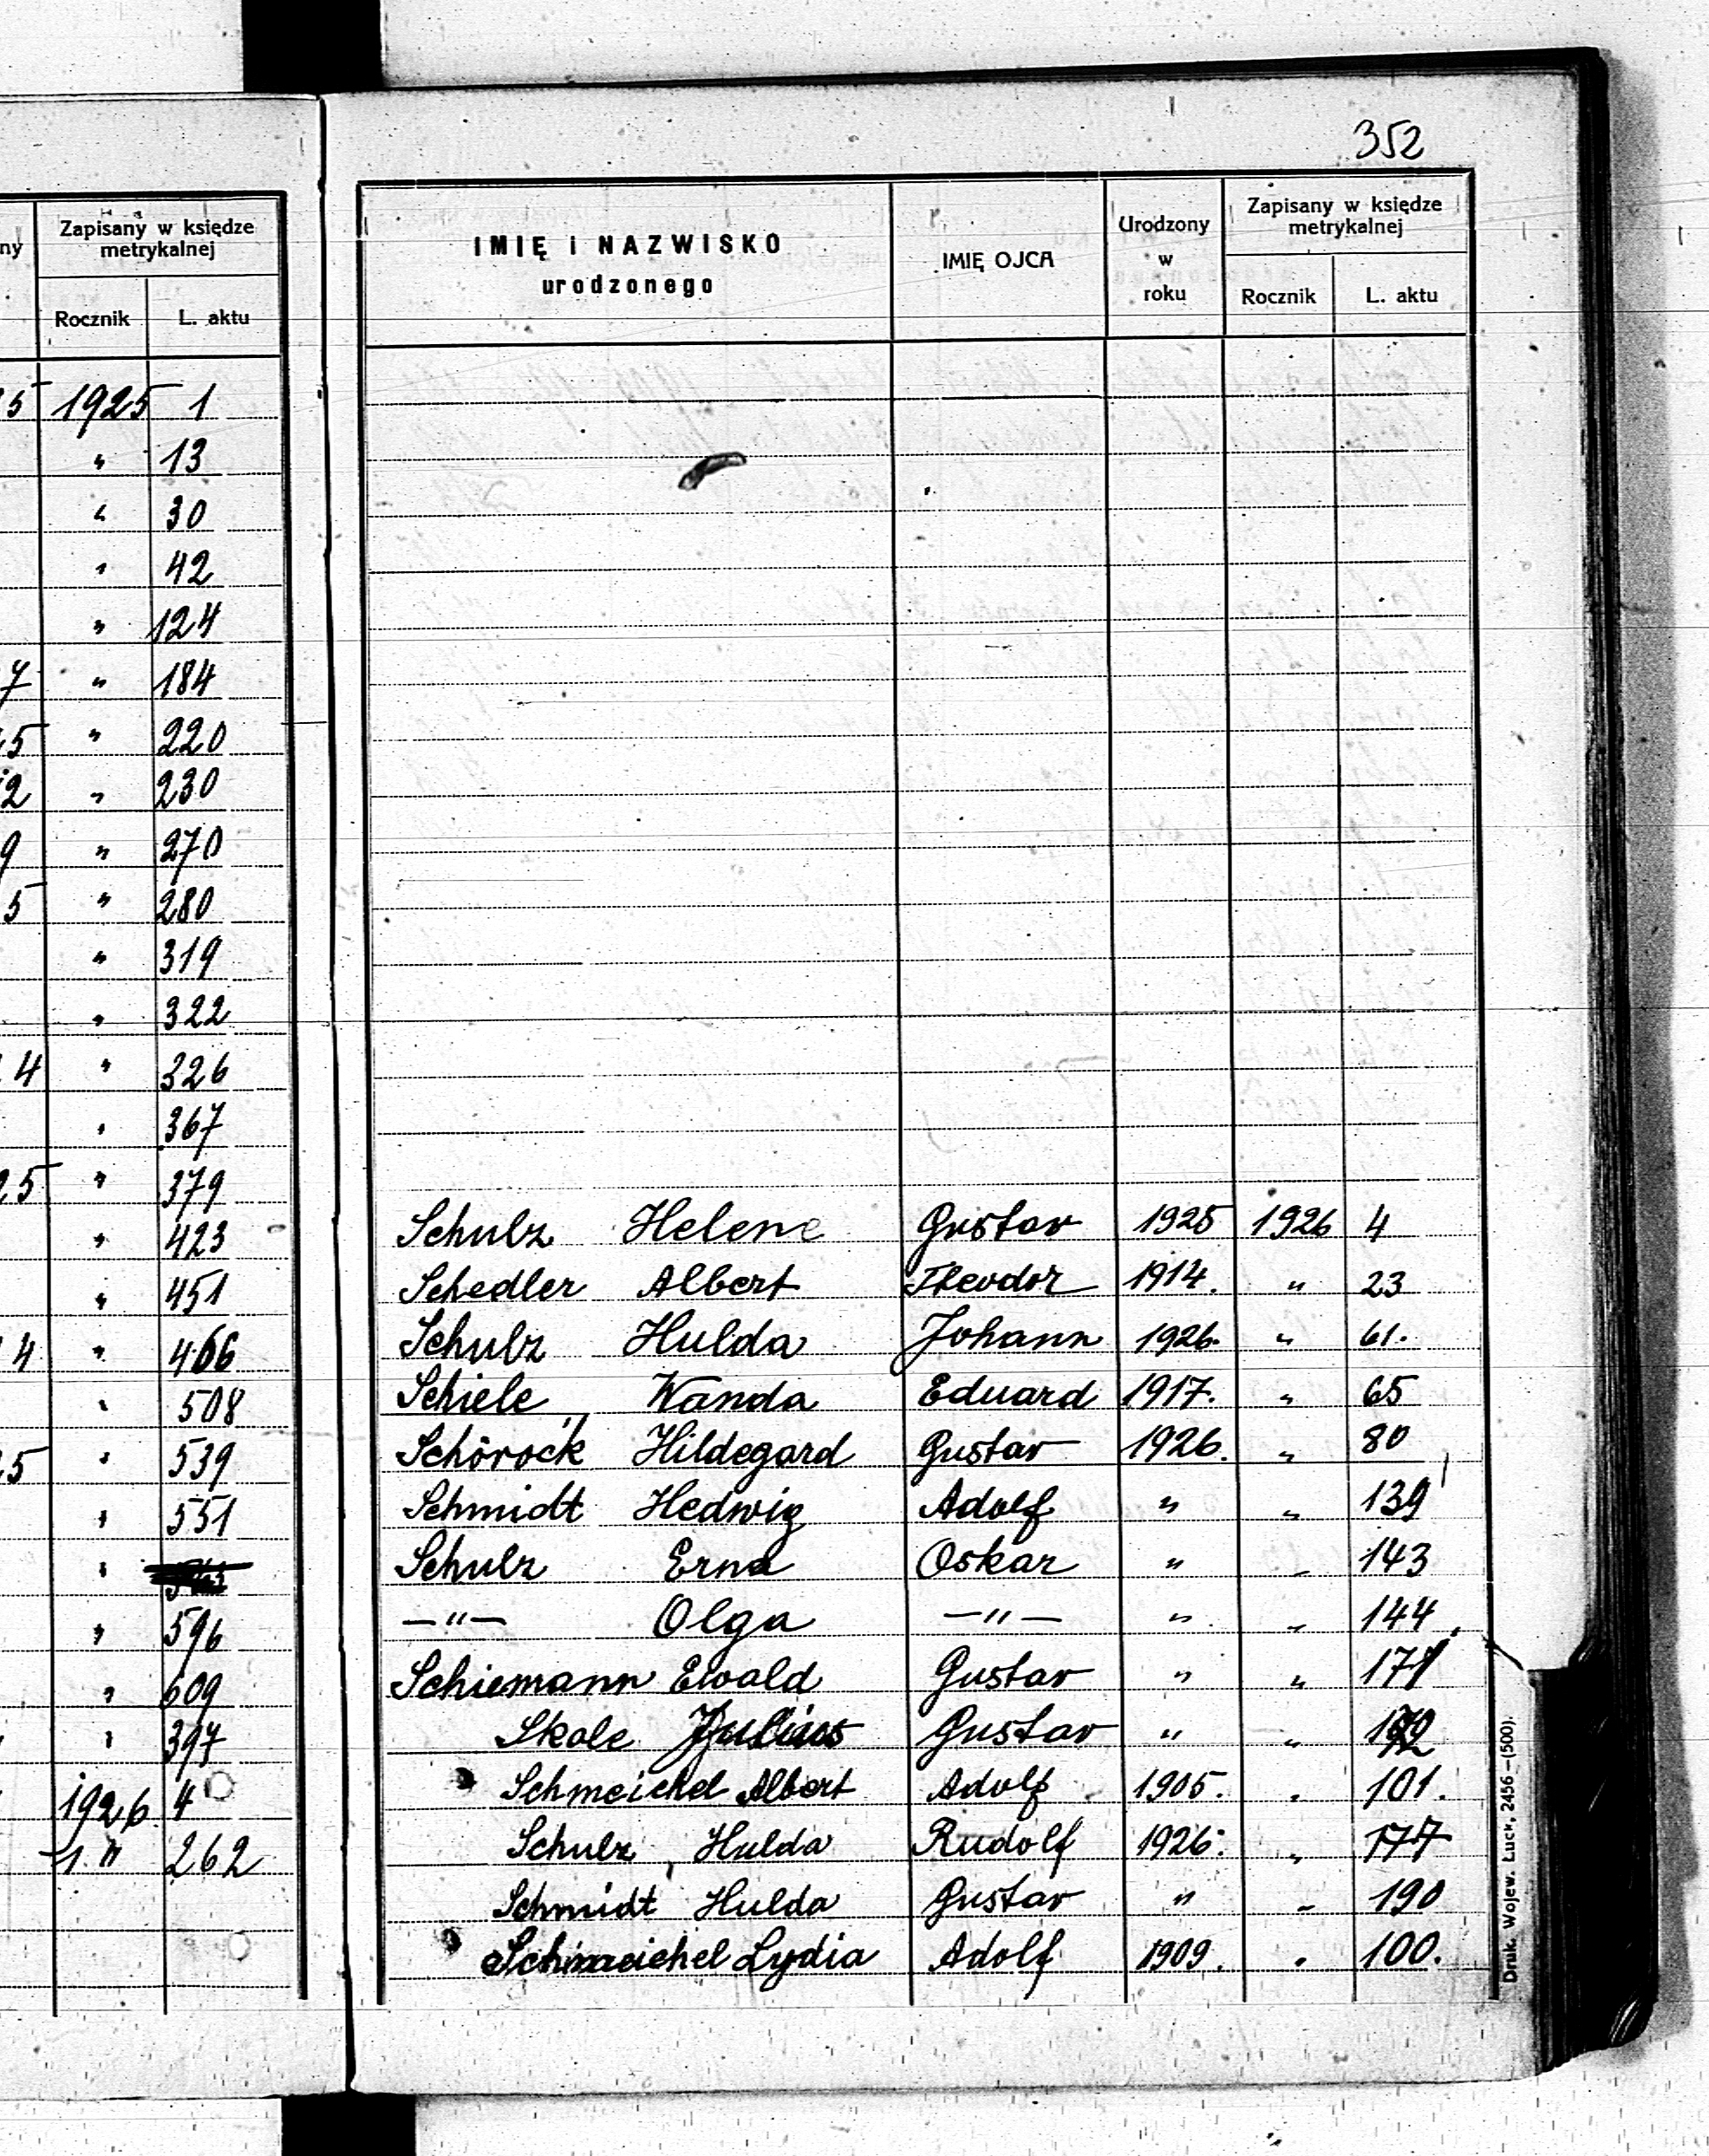 352
ny Zapisany w księdze
metrykalnej
Rocznik L. aktu
5 1925 1
" 13
" 30
" 42
" 124
7 " 184
5 " 220
2 " 230
9 " 270
5 " 280
" 319
" 322
4 " 326
" 367
25 " 379
" 423
" 451
4 " 466
" 508
25 " 539
" 551
"
" 596
" 609
" 397
1926 4
" 262
IMIĘ i NAZWISKO
urodzonego
IMIĘ OJCA
Urodzony
w
roku
Zapisany w księdze
metrykalnej
Rocznik L. aktu
Schulz Helene Gustav 1925 1926 4
Schedler Albert Theodor 1914. " 23
Schulz Hulda Johann 1926. " 61.
Schiele Wanda Eduard 1917. " 65
Schörock Hildegard Gustav 1926. " 80
Schmidt Hedwig Adolf " " 139
Schulz Erna Oskar " " 143
—"— Olga —"— " " 144
Schiemann Ewald Gustav " " 171
Skale Julius Gustav " "
Schmeichel Albert Adolf 1905. " 101.
Schulz, Hulda Rudolf 1926. " 177
Schmidt Hulda Gustav " " 190
Schmeichel Lydia Adolf 1909. " 100.
Druk. Wojew. Łuck, 2456—(500).